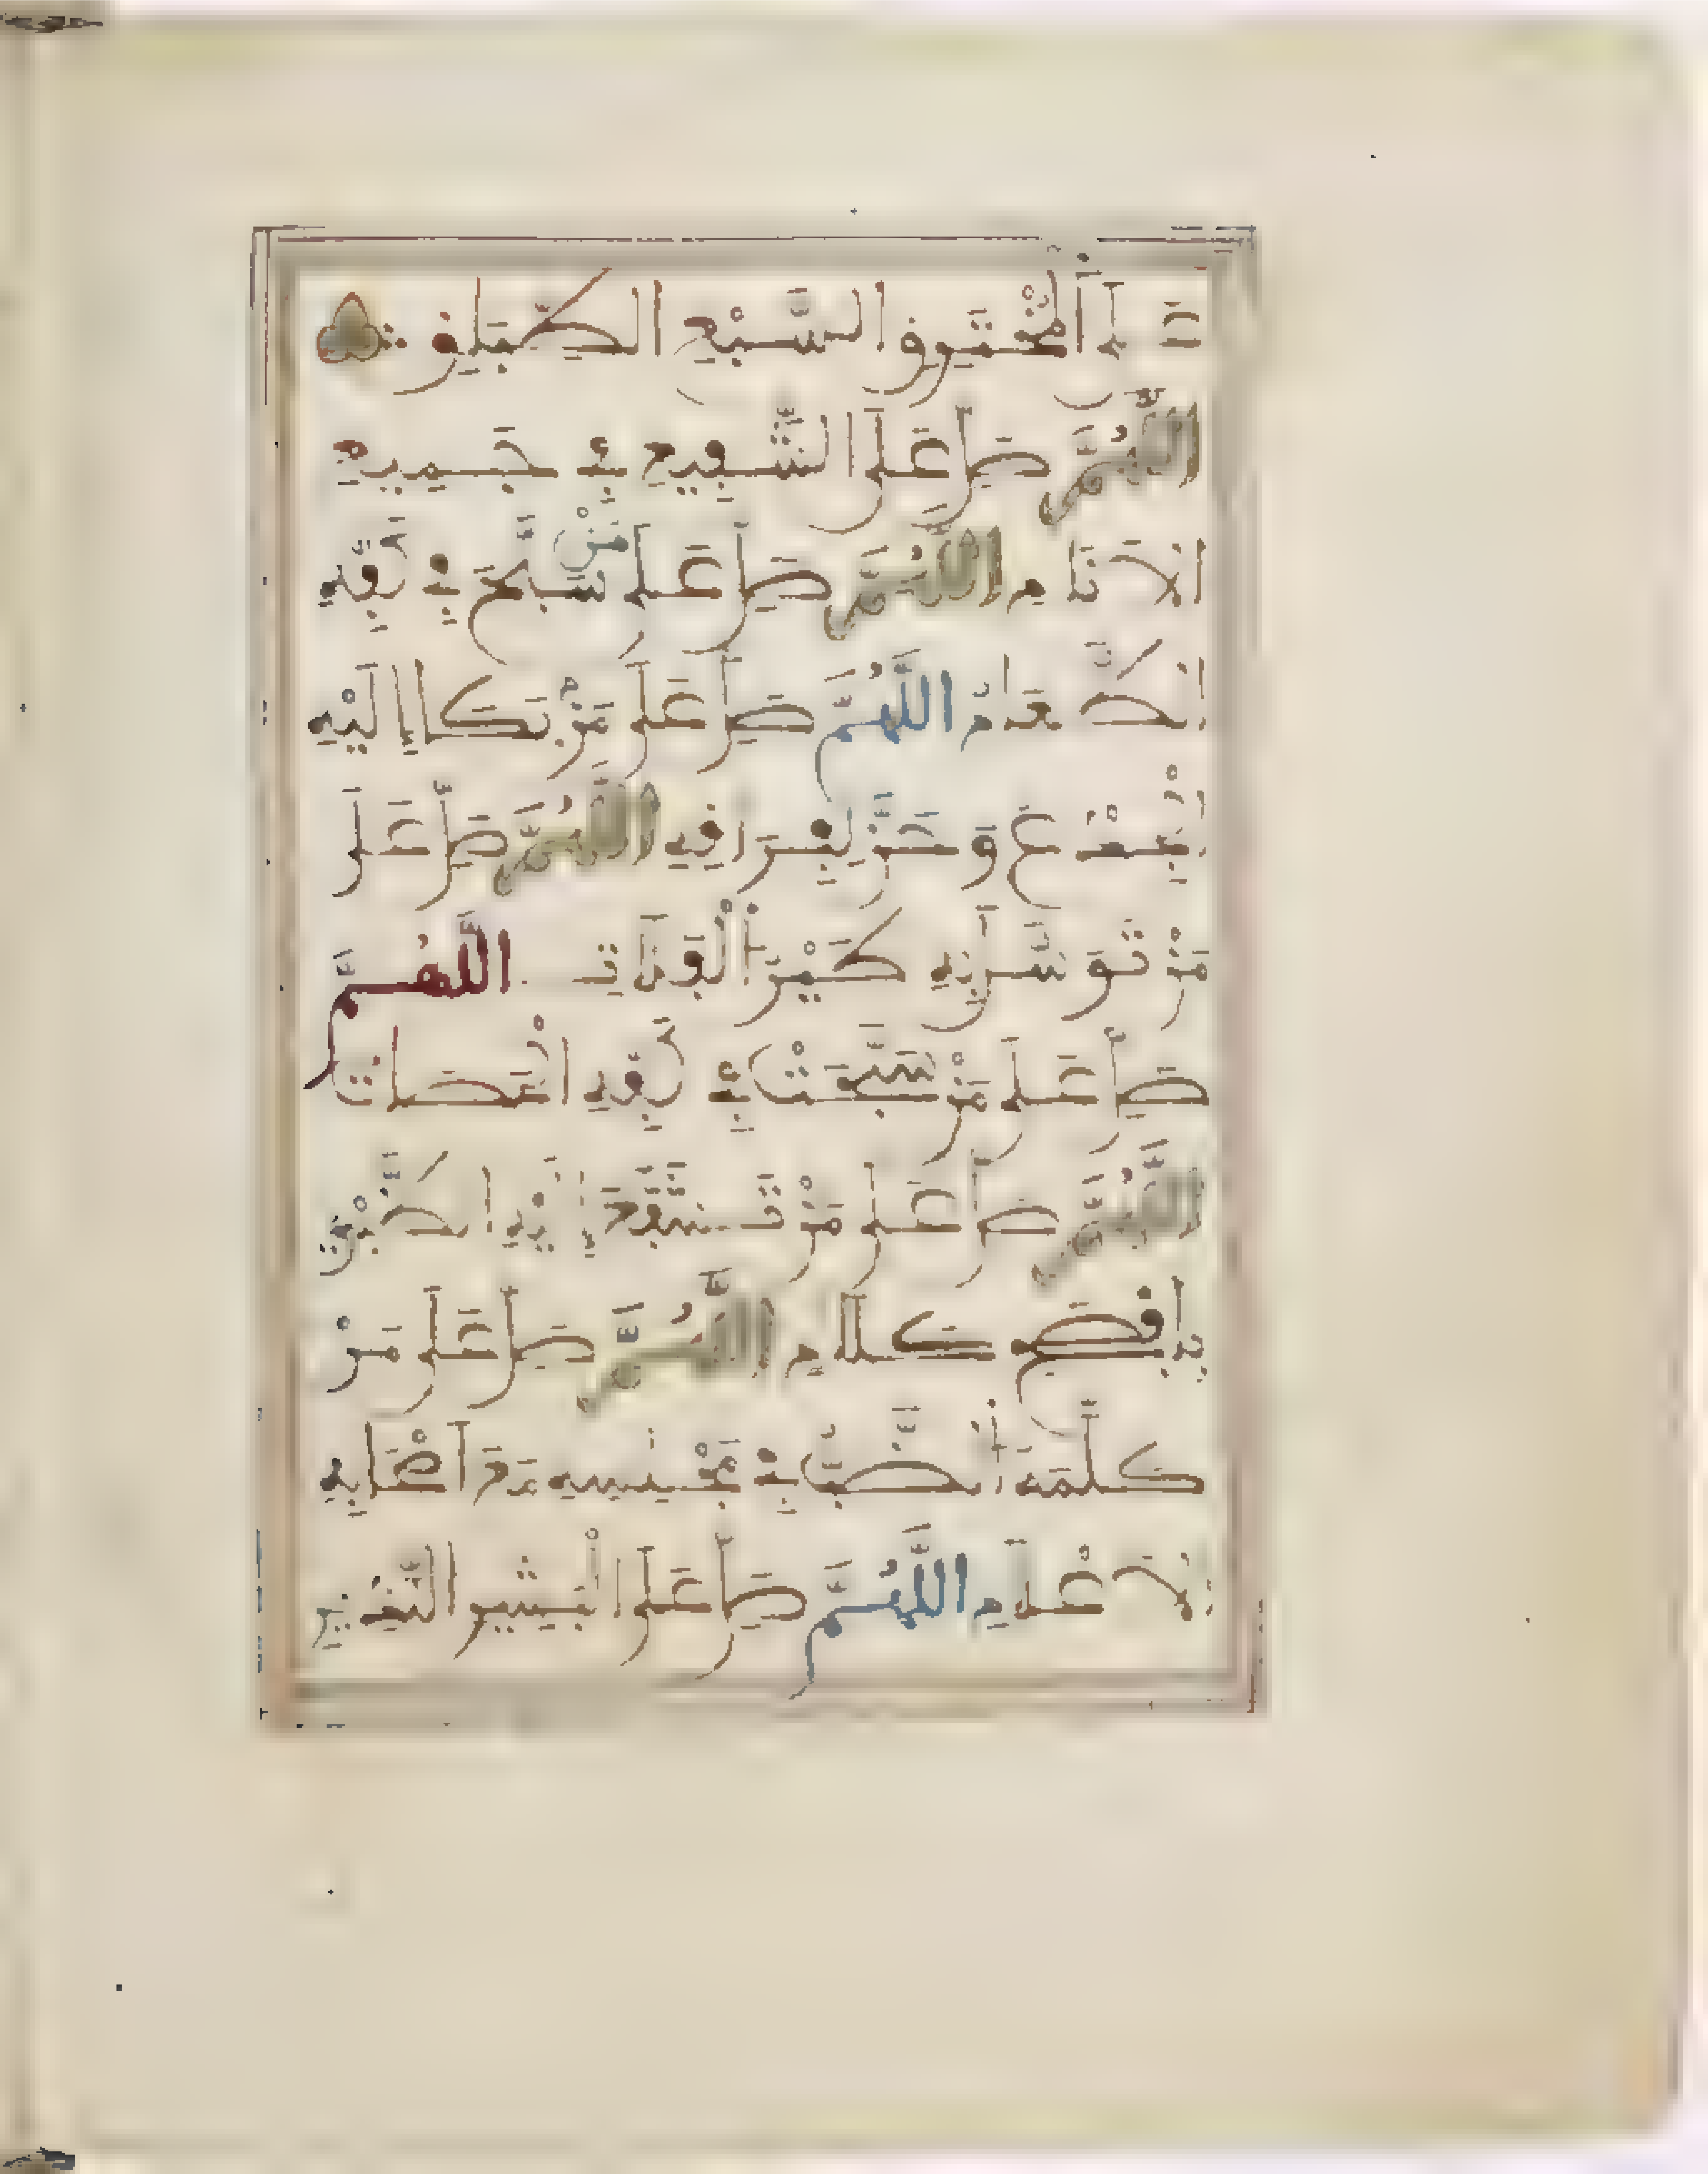 ءَ الْمُخْتَرِقِ السَّبْعَ الطِّبَاقِ
اللَّهُمَّ صَلِّ عَلَى الشَّفِيعِ فِي جَمِيعِ
الْأَنَامِ اللَّهُمَّ صَلِّ عَلَى مَنْ سَبَّحَ فِي كَفِّهِ
الطَّعَامُ اللَّهُمَّ صَلِّ عَلَى مَنْ بَكَى إِلَيْهِ
الْجِذْعُ وَحَنَّ لِفِرَاقِهِ اللَّهُمَّ صَلِّ عَلَى
مَنْ تَوَسَّلَ بِهِ طَيْرُ الْفَلَاةِ اللَّهُمَّ
صَلِّ عَلَى مَنْ سَبَّحَتْ فِي كَفِّهِ الْحَصَاةُ
اللَّهُمَّ صَلِّ عَلَى مَنْ تَشَفَّعَ إِلَيْهِ الظَّبْيُ
بِأَفْصَحِ كَلَامٍ اللَّهُمَّ صَلِّ عَلَى مَنْ
كَلَّمَهُ الضَّبُّ فِي مَجْلِسِهِ مَعَ أَصْحَابِهِ
الْأَعْلَامِ اللَّهُمَّ صَلِّ عَلَى الْبَشِيرِ النَّذِيرِ